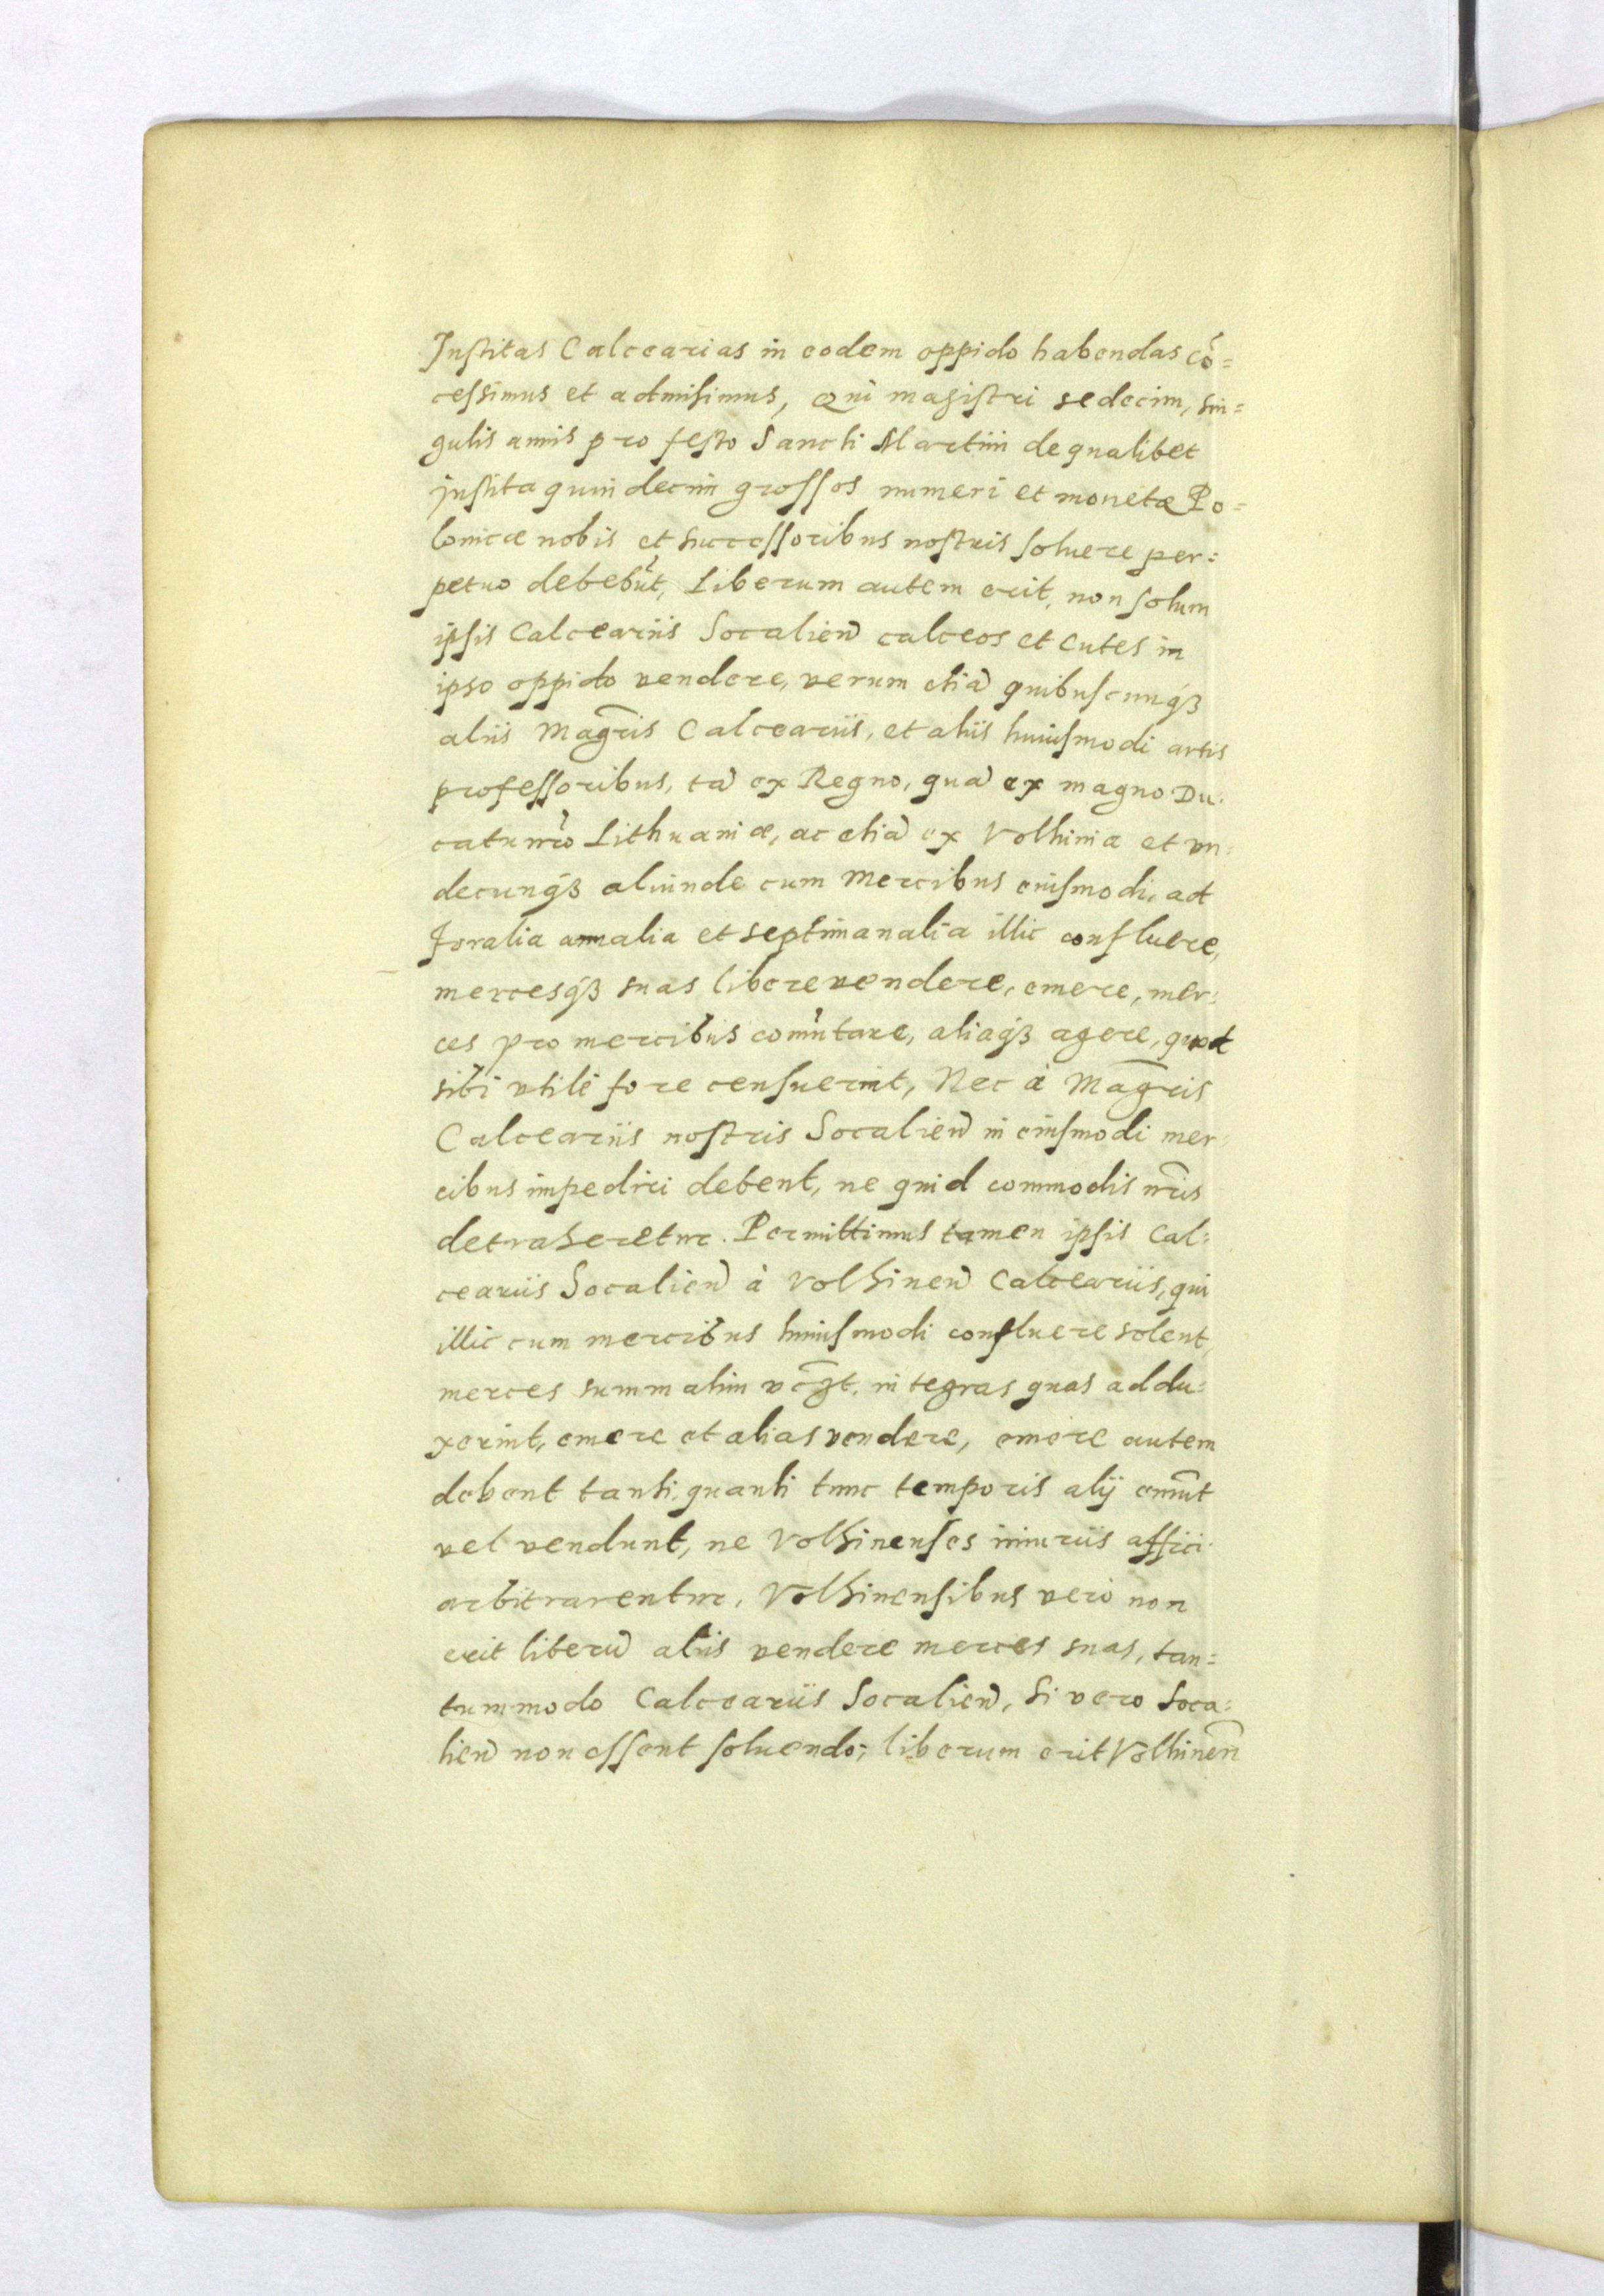 Institas Calcearias in eodem oppido habendas cō=
cessimus et admisimus, Qui magistri sedecim, sin=
gulis annis pro festo Sancti Martini de qualibet
jnstita quindecim grossos numeri et monetæ Po=
lonicæ nobis et successoribus nostris soluere per=
petuo debebūt, Liberum autem erit, non solum
ipsis Calceariis Socalień calceos et cutes in
ipso oppido vendere, verum etiā quibuscunqȝ
aliis Magr̄is Calceariis, et aliis huiusmodi artis
professoribus, tā ex Regno, quā ex magno Du=
catu nr̄o Lithuaniæ, ac etiā ex Volhinia et vn=
decunqȝ aliunde cum mercibus eiusmodi, ad
foralia annalia et septimanalia illic confluere,
mercesqȝ suas libere vendere, emere, mer=
ces pro mercibus com̄utare, aliaqȝ agere, quod
sibi vtile fore censuerint, Nec à Magr̄is
Calceariis nostris Socalień in eiusmodi mer=
cibus impediri debent, ne quid commodis nr̄is
detraheretur. Permittimus tamen ipsis Cal=
ceariis Socalień à Volhineń Calceariis, qui
illic cum mercibus huiusmodi confluere solent,
merces summatim vc̄gt. integras quas addu=
xerint, emere et alias vendere, emere autem
debent tanti, quanti tunc temporis alij emūt
vel vendunt, ne Volhinenses iniuriis affici
arbitrarentur, Volhinensibus verò non
erit liberū aliis vendere merces suas, tan=
tummodo Calceariis Socalień, Si vero Soca=
lień non essent soluendo; liberum erit Volhineń